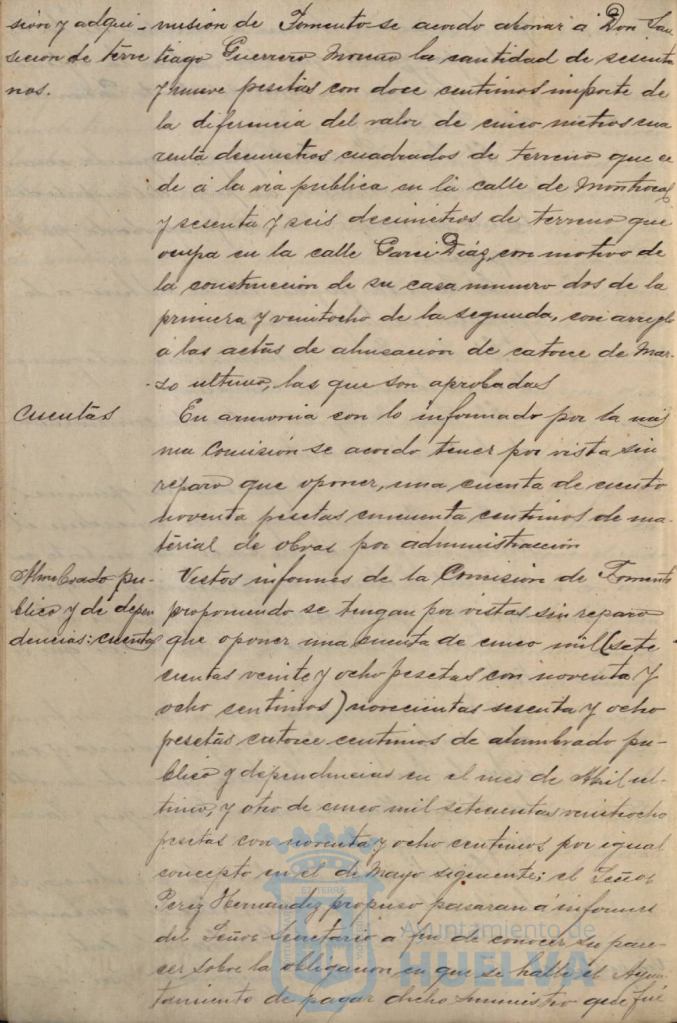 sión y adqui-
sición de terre
nos.
misión de Fomento se acordó abonar á Don San
tiago Guerrero Moreno la cantidad de sesenta
y nueve pesetas con doce centimos importe de
la diferencia del valor de cinco metros cua
renta decimetros cuadrados de terreno que ce
de á la via publica en la calle de Montrocal
y sesenta y seis decimetros de terreno que
ocupa en la calle Garci Diáz, con motivo de
la construcción de su casa numero dos de la
primera y veintiocho de la segunda, con arreglo
á las actas de alineación de catorce de Mar-
zo ultimo, las que son aprobadas
Cuentas
En armonia con lo informado por la mis
ma Comisión se acordó tener por vista sin
reparo que oponer, una cuenta de ciento
noventa pesetas cincuenta centimos de ma-
terial de obras por administración
Alumbrado pu-
blico y de depen
dencias: cuentas
Vistos informes de la Comisión de Fomento
proponiendo se tengan por vistas sin reparo
que oponer una cuenta de cinco mil (sete
cientas veinte y ocho pesetas con noventa y
ocho centimos) novecientas sesenta y ocho
pesetas catorce centimos de alumbrado pu-
blico y dependencias en el mes de Abril ul-
timo, y otro de cinco mil setecientas veintiocho
pesetas con noventa y ocho centimos por igual
concepto en el de Mayo siguiente; el Señor
Perez Hernandez propuso pasaran á informe
del Señor Secretario a fin de conocer su pare-
cer sobre la obligacion en que se halle el Ayun
tamiento de pagar dicho suministro que fué
Ayuntamiento de
HUELVA